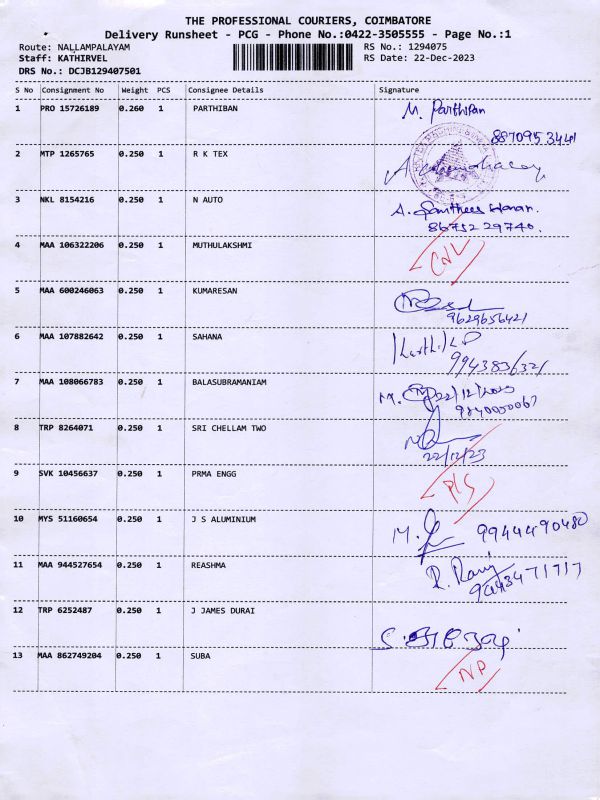 THE PROFESSIONAL COURIERS, COIMBATORE
Delivery Runsheet - PCG - Phone No.:0422-3505555 - Page No.:1
Route: NALLAMPALAYAM RS No.: 1294075
Staff: KATHIRVEL RS Date: 22-Dec-2023
DRS No.: DCJB129407501
S No Consignment No Weight PCS Consignee Details Signature
1 PRO 15726189 0.260 1 PARTHIBAN M. Parthiban
8870953441
2 MTP 1265765 0.250 1 R K TEX
3 NKL 8154216 0.250 1 N AUTO A.
86752 29740.
4 MAA 106322206 0.250 1 MUTHULAKSHMI CNL
5 MAA 600246063 0.250 1 KUMARESAN
9629656421
6 MAA 107882642 0.250 1 SAHANA
9943836321
7 MAA 108066783 0.250 1 BALASUBRAMANIAM 22/12/2023
8 TRP 8264071 0.250 1 SRI CHELLAM TWO
22/12/23
9 SVK 10456637 0.250 1 PRMA ENGG
10 MYS 51160654 0.250 1 J S ALUMINIUM M. 9944490480
11 MAA 944527654 0.250 1 REASHMA R. Ravi
12 TRP 6252487 0.250 1 J JAMES DURAI
13 MAA 862749204 0.250 1 SUBA NP